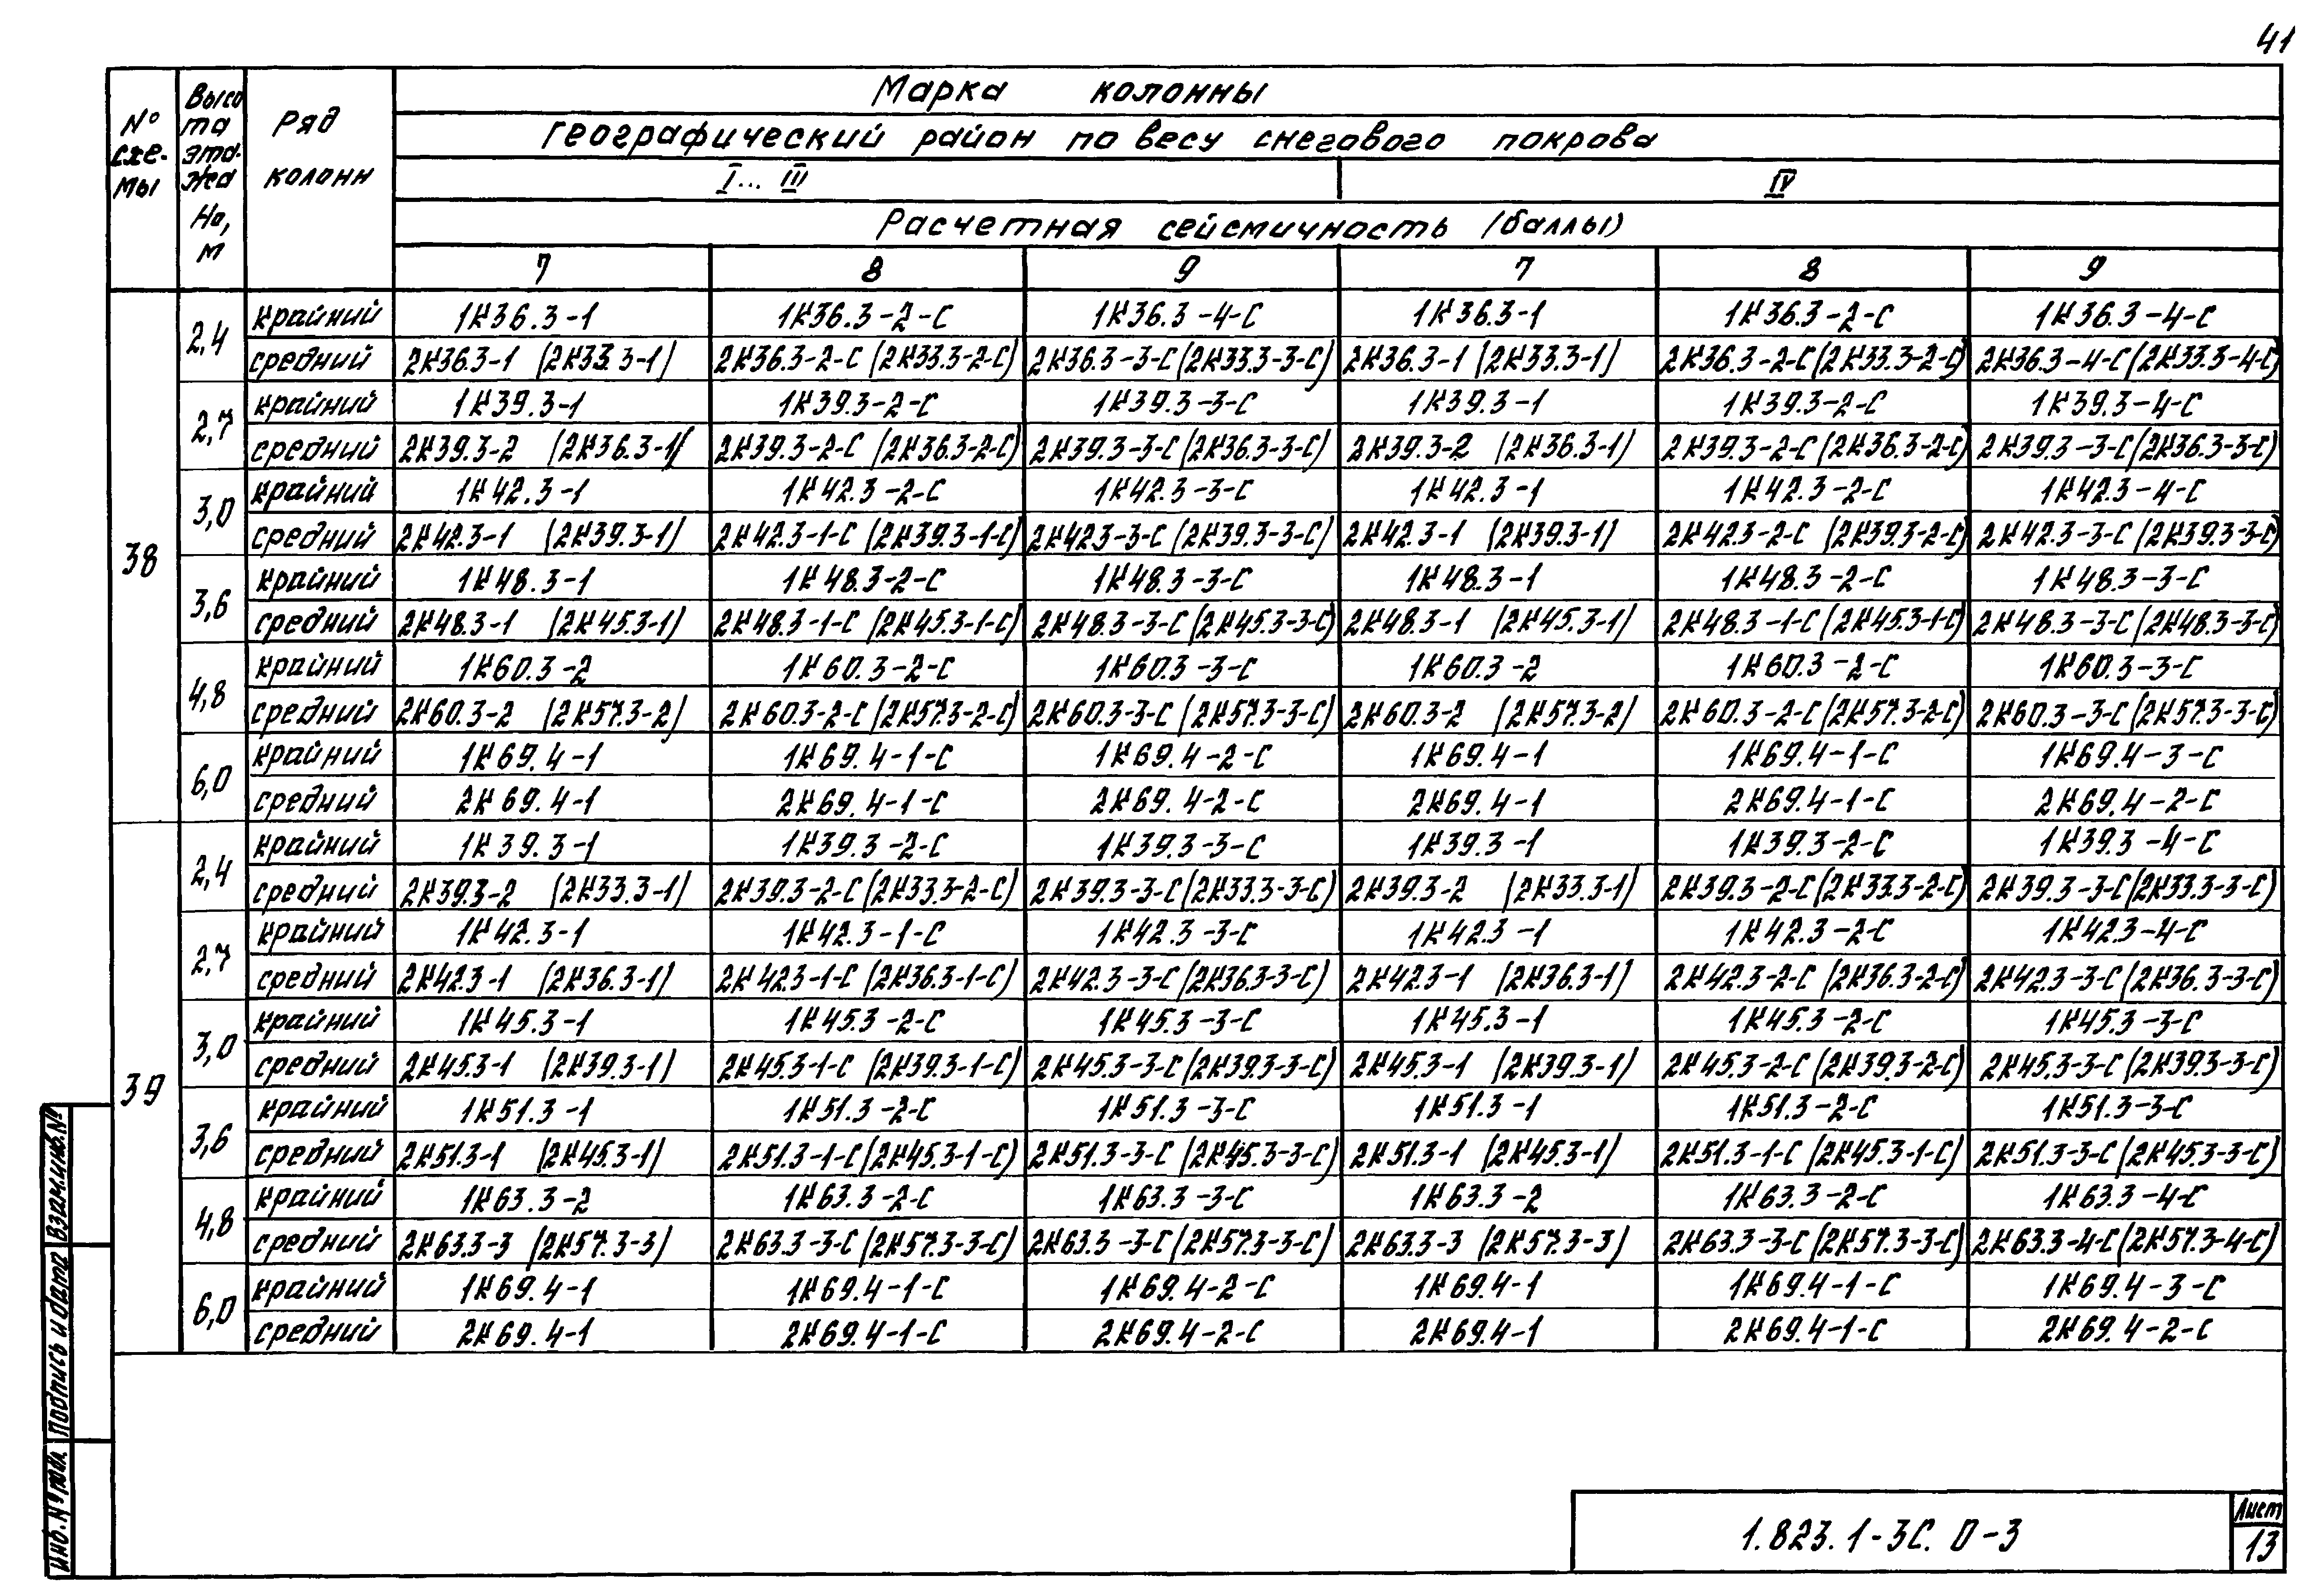 41
№ схе- мы | Высо та эта- жа Но, м | Ряд колонн | Марка колонны
Географический район по весу снегового покрова
I... III | IV
Расчетная сейсмичность (баллы)
7 | 8 | 9 | 7 | 8 | 9
38
2,4
крайний | 1К36.3-1 | 1К36.3-2-С | 1К36.3-4-С | 1К36.3-1 | 1К36.3-2-С | 1К36.3-4-С
средний | 2К36.3-1 (2К33.3-1) | 2К36.3-2-С (2К33.3-2-С) | 2К36.3-3-С (2К33.3-3-С) | 2К36.3-1 (2К33.3-1) | 2К36.3-2-С (2К33.3-2-С) | 2К36.3-4-С (2К33.3-4-С)
2,7
крайний | 1К39.3-1 | 1К39.3-2-С | 1К39.3-3-С | 1К39.3-1 | 1К39.3-2-С | 1К39.3-4-С
средний | 2К39.3-2 (2К36.3-1) | 2К39.3-2-С (2К36.3-2-С) | 2К39.3-3-С (2К36.3-3-С) | 2К39.3-2 (2К36.3-1) | 2К39.3-2-С (2К36.3-2-С) | 2К39.3-3-С (2К36.3-3-С)
3,0
крайний | 1К42.3-1 | 1К42.3-2-С | 1К42.3-3-С | 1К42.3-1 | 1К42.3-2-С | 1К42.3-4-С
средний | 2К42.3-1 (2К39.3-1) | 2К42.3-1-С (2К39.3-1-С) | 2К42.3-3-С (2К39.3-3-С) | 2К42.3-1 (2К39.3-1) | 2К42.3-2-С (2К39.3-2-С) | 2К42.3-3-С (2К39.3-3-С)
3,6
крайний | 1К48.3-1 | 1К48.3-2-С | 1К48.3-3-С | 1К48.3-1 | 1К48.3-2-С | 1К48.3-3-С
средний | 2К48.3-1 (2К45.3-1) | 2К48.3-1-С (2К45.3-1-С) | 2К48.3-3-С (2К45.3-3-С) | 2К48.3-1 (2К45.3-1) | 2К48.3-1-С (2К45.3-1-С) | 2К48.3-3-С (2К48.3-3-С)
4,8
крайний | 1К60.3-2 | 1К60.3-2-С | 1К60.3-3-С | 1К60.3-2 | 1К60.3-2-С | 1К60.3-3-С
средний | 2К60.3-2 (2К57.3-2) | 2К60.3-2-С (2К57.3-2-С) | 2К60.3-3-С (2К57.3-3-С) | 2К60.3-2 (2К57.3-2) | 2К60.3-2-С (2К57.3-2-С) | 2К60.3-3-С (2К57.3-3-С)
6,0
крайний | 1К69.4-1 | 1К69.4-1-С | 1К69.4-2-С | 1К69.4-1 | 1К69.4-1-С | 1К69.4-3-С
средний | 2К69.4-1 | 2К69.4-1-С | 2К69.4-2-С | 2К69.4-1 | 2К69.4-1-С | 2К69.4-2-С
39
2,4
крайний | 1К39.3-1 | 1К39.3-2-С | 1К39.3-3-С | 1К39.3-1 | 1К39.3-2-С | 1К39.3-4-С
средний | 2К39.3-2 (2К33.3-1) | 2К39.3-2-С (2К33.3-2-С) | 2К39.3-3-С (2К33.3-3-С) | 2К39.3-2 (2К33.3-1) | 2К39.3-2-С (2К33.3-2-С) | 2К39.3-3-С (2К33.3-3-С)
2,7
крайний | 1К42.3-1 | 1К42.3-1-С | 1К42.3-3-С | 1К42.3-1 | 1К42.3-2-С | 1К42.3-4-С
средний | 2К42.3-1 (2К36.3-1) | 2К42.3-1-С (2К36.3-1-С) | 2К42.3-3-С (2К36.3-3-С) | 2К42.3-1 (2К36.3-1) | 2К42.3-2-С (2К36.3-2-С) | 2К42.3-3-С (2К36.3-3-С)
3,0
крайний | 1К45.3-1 | 1К45.3-2-С | 1К45.3-3-С | 1К45.3-1 | 1К45.3-2-С | 1К45.3-3-С
средний | 2К45.3-1 (2К39.3-1) | 2К45.3-1-С (2К39.3-1-С) | 2К45.3-3-С (2К39.3-3-С) | 2К45.3-1 (2К39.3-1) | 2К45.3-2-С (2К39.3-2-С) | 2К45.3-3-С (2К39.3-3-С)
3,6
крайний | 1К51.3-1 | 1К51.3-2-С | 1К51.3-3-С | 1К51.3-1 | 1К51.3-2-С | 1К51.3-3-С
средний | 2К51.3-1 (2К45.3-1) | 2К51.3-1-С (2К45.3-1-С) | 2К51.3-3-С (2К45.3-3-С) | 2К51.3-1 (2К45.3-1) | 2К51.3-1-С (2К45.3-1-С) | 2К51.3-3-С (2К45.3-3-С)
4,8
крайний | 1К63.3-2 | 1К63.3-2-С | 1К63.3-3-С | 1К63.3-2 | 1К63.3-2-С | 1К63.3-4-С
средний | 2К63.3-3 (2К57.3-3) | 2К63.3-3-С (2К57.3-3-С) | 2К63.3-3-С (2К57.3-3-С) | 2К63.3-3 (2К57.3-3) | 2К63.3-3-С (2К57.3-3-С) | 2К63.3-4-С (2К57.3-4-С)
6,0
крайний | 1К69.4-1 | 1К69.4-1-С | 1К69.4-2-С | 1К69.4-1 | 1К69.4-1-С | 1К69.4-3-С
средний | 2К69.4-1 | 2К69.4-1-С | 2К69.4-2-С | 2К69.4-1 | 2К69.4-1-С | 2К69.4-2-С
Инв.№ подл. Подпись и дата Взам.инв.№
1.823.1-3С. 0-3
Лист
13